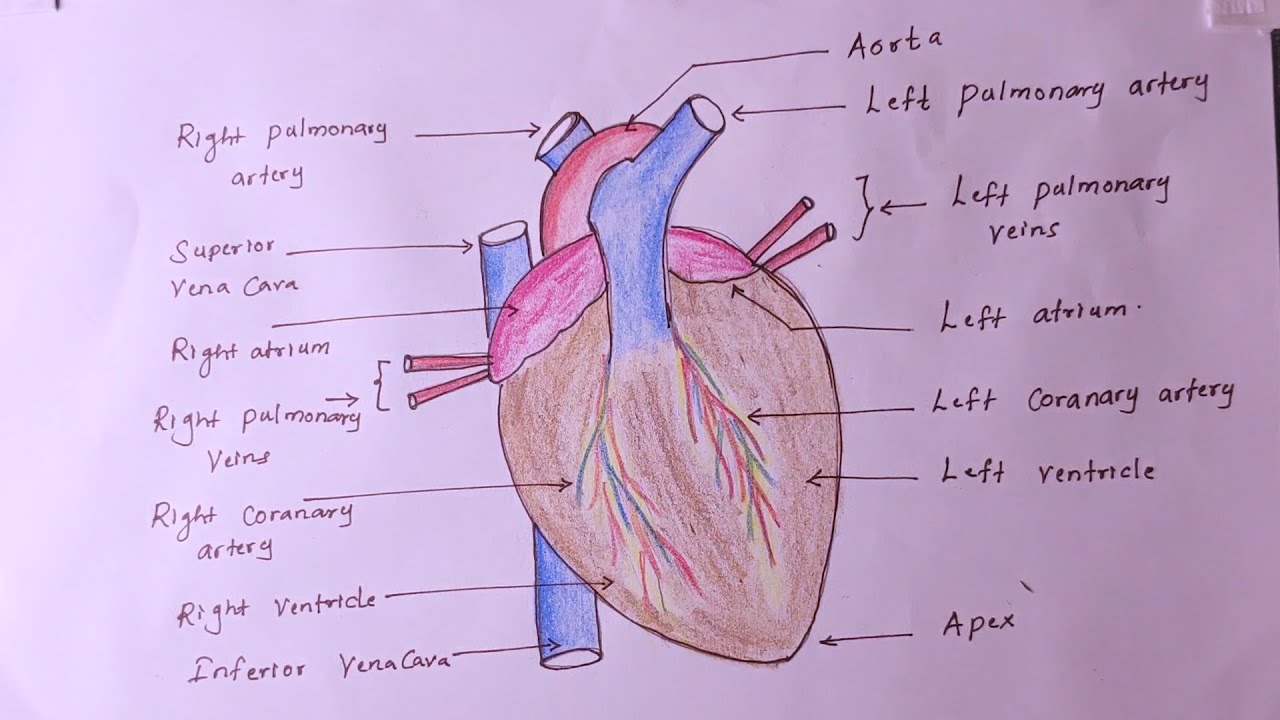 Aorta
Left pulmonary artery
Right pulmonary
artery
Left pulmonary
veins
Superior
Vena Cava
Left atrium.
Right atrium
Left Coranary artery
Right pulmonary
Veins
Left ventricle
Right Coranary
artery
Right Ventricle
Apex
Inferior VenaCava